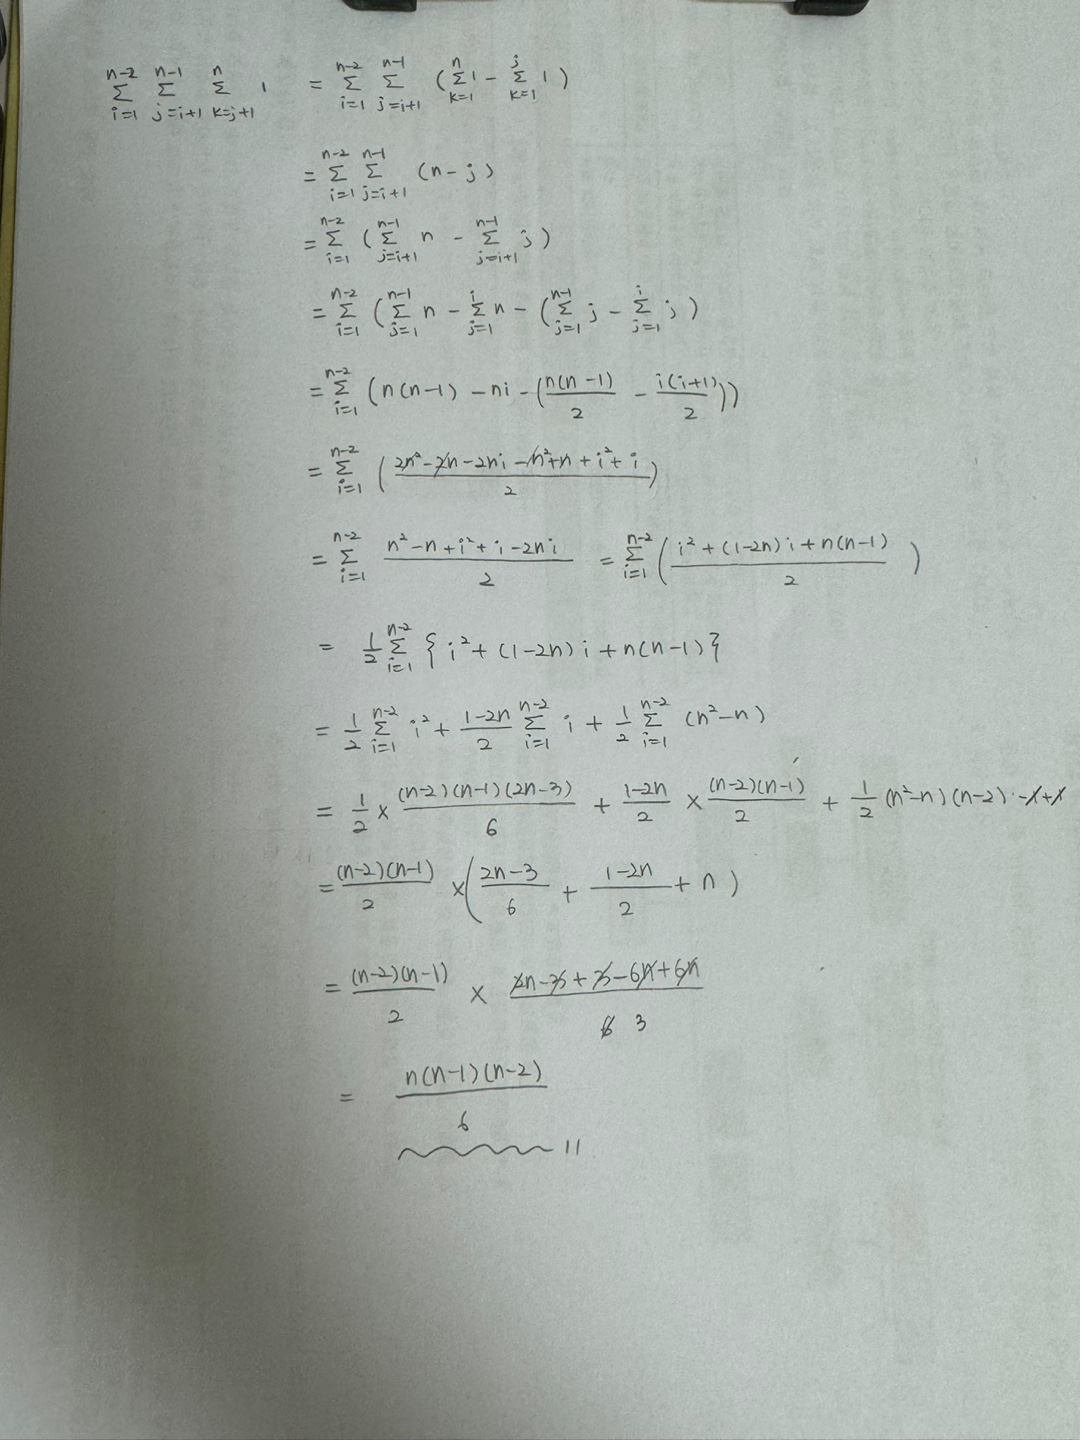 \sum_{i=1}^{n-2} \sum_{j=i+1}^{n-1} \sum_{k=j+1}^{n} 1 = \sum_{i=1}^{n-2} \sum_{j=i+1}^{n-1} (\sum_{k=1}^{n} 1 - \sum_{k=1}^{j} 1)
= \sum_{i=1}^{n-2} \sum_{j=i+1}^{n-1} (n-j)
= \sum_{i=1}^{n-2} (\sum_{j=i+1}^{n-1} n - \sum_{j=i+1}^{n-1} j)
= \sum_{i=1}^{n-2} (\sum_{j=1}^{n-1} n - \sum_{j=1}^{i} n - (\sum_{j=1}^{n-1} j - \sum_{j=1}^{i} j)
= \sum_{i=1}^{n-2} (n(n-1) - ni - (\frac{n(n-1)}{2} - \frac{i(i+1)}{2}))
= \sum_{i=1}^{n-2} (\frac{2n^2-2n-2ni-n^2+n+i^2+i}{2})
= \sum_{i=1}^{n-2} \frac{n^2-n+i^2+i-2ni}{2} = \sum_{i=1}^{n-2} (\frac{i^2+(1-2n)i+n(n-1)}{2})
= \frac{1}{2} \sum_{i=1}^{n-2} \{i^2+(1-2n)i+n(n-1)\}
= \frac{1}{2} \sum_{i=1}^{n-2} i^2 + \frac{1-2n}{2} \sum_{i=1}^{n-2} i + \frac{1}{2} \sum_{i=1}^{n-2} (n^2-n)
= \frac{1}{2} × \frac{(n-2)(n-1)(2n-3)}{6} + \frac{1-2n}{2} × \frac{(n-2)(n-1)}{2} + \frac{1}{2} (n^2-n)(n-2)
= \frac{(n-2)(n-1)}{2} × (\frac{2n-3}{6} + \frac{1-2n}{2} + n)
= \frac{(n-2)(n-1)}{2} × \frac{2n-3+3-6n+6n}{6 3}
= \frac{n(n-1)(n-2)}{6}